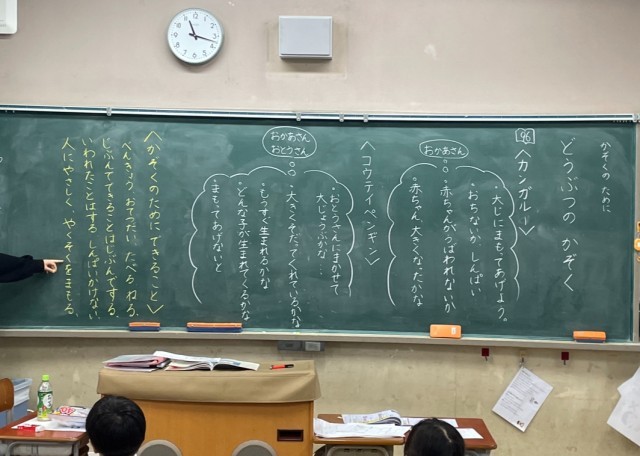 かぞくのために
どうぶつの かぞく
96
＜カンガルー＞
おかあさん
・大じにまもってあげよう。
・おちないか しんぱい
・赤ちゃんがうばわれないか
・赤ちゃん、大きくなったかな
＜コウテイペンギン＞
おかあさん
おとうさん
・おとうさんにまかせて
大じょうぶかな…
・大きくそだってくれているかな
・もうすぐ生まれるかな
・どんな子が生まれてくるかな
・まもってあげないと
＜かぞくのためにできること＞
べんきょう おてつだい たべる ねる、
じぶんでできることはじぶんでする、
いわれたことはする しんぱいかけない、
人にやさしく、やくそくをまもる、